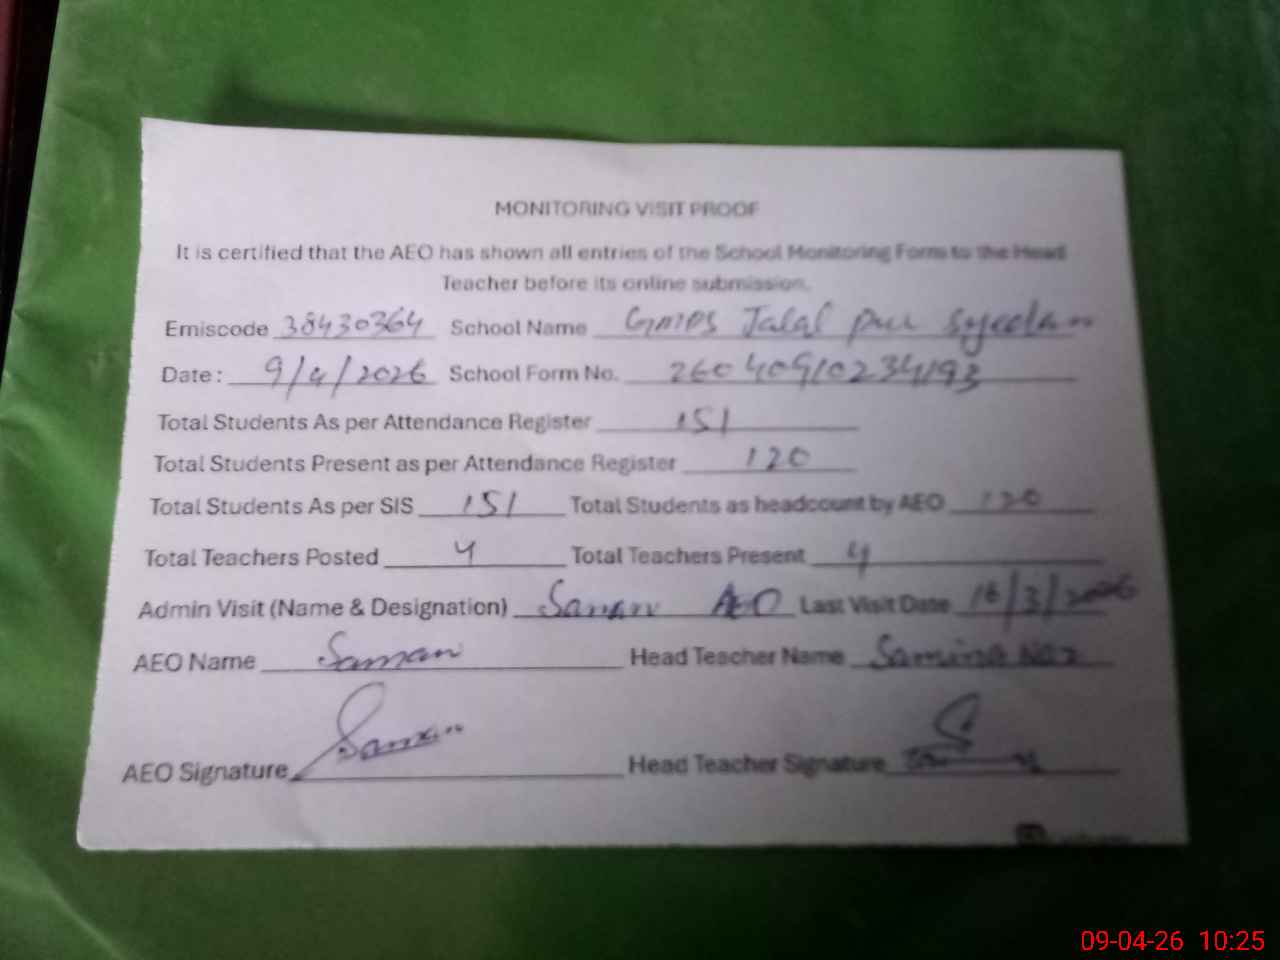 MONITORING VISIT PROOF
It is certified that the AEO has shown all entries of the School Monitoring Form to the Head
Teacher before its online submission.
Emiscode 38430364 School Name GMPS Jalal pur Syedan
Date: 9/4/2026 School Form No. 26040910234193
Total Students As per Attendance Register 151
Total Students Present as per Attendance Register 120
Total Students As per SIS 151 Total Students as headcount by AEO 120
Total Teachers Posted 4 Total Teachers Present 4
Admin Visit (Name & Designation) Saman AEO Last Visit Date 16/3/2026
AEO Name Saman Head Teacher Name Samina Naz
AEO Signature Saman Head Teacher Signature
09-04-26 10:25